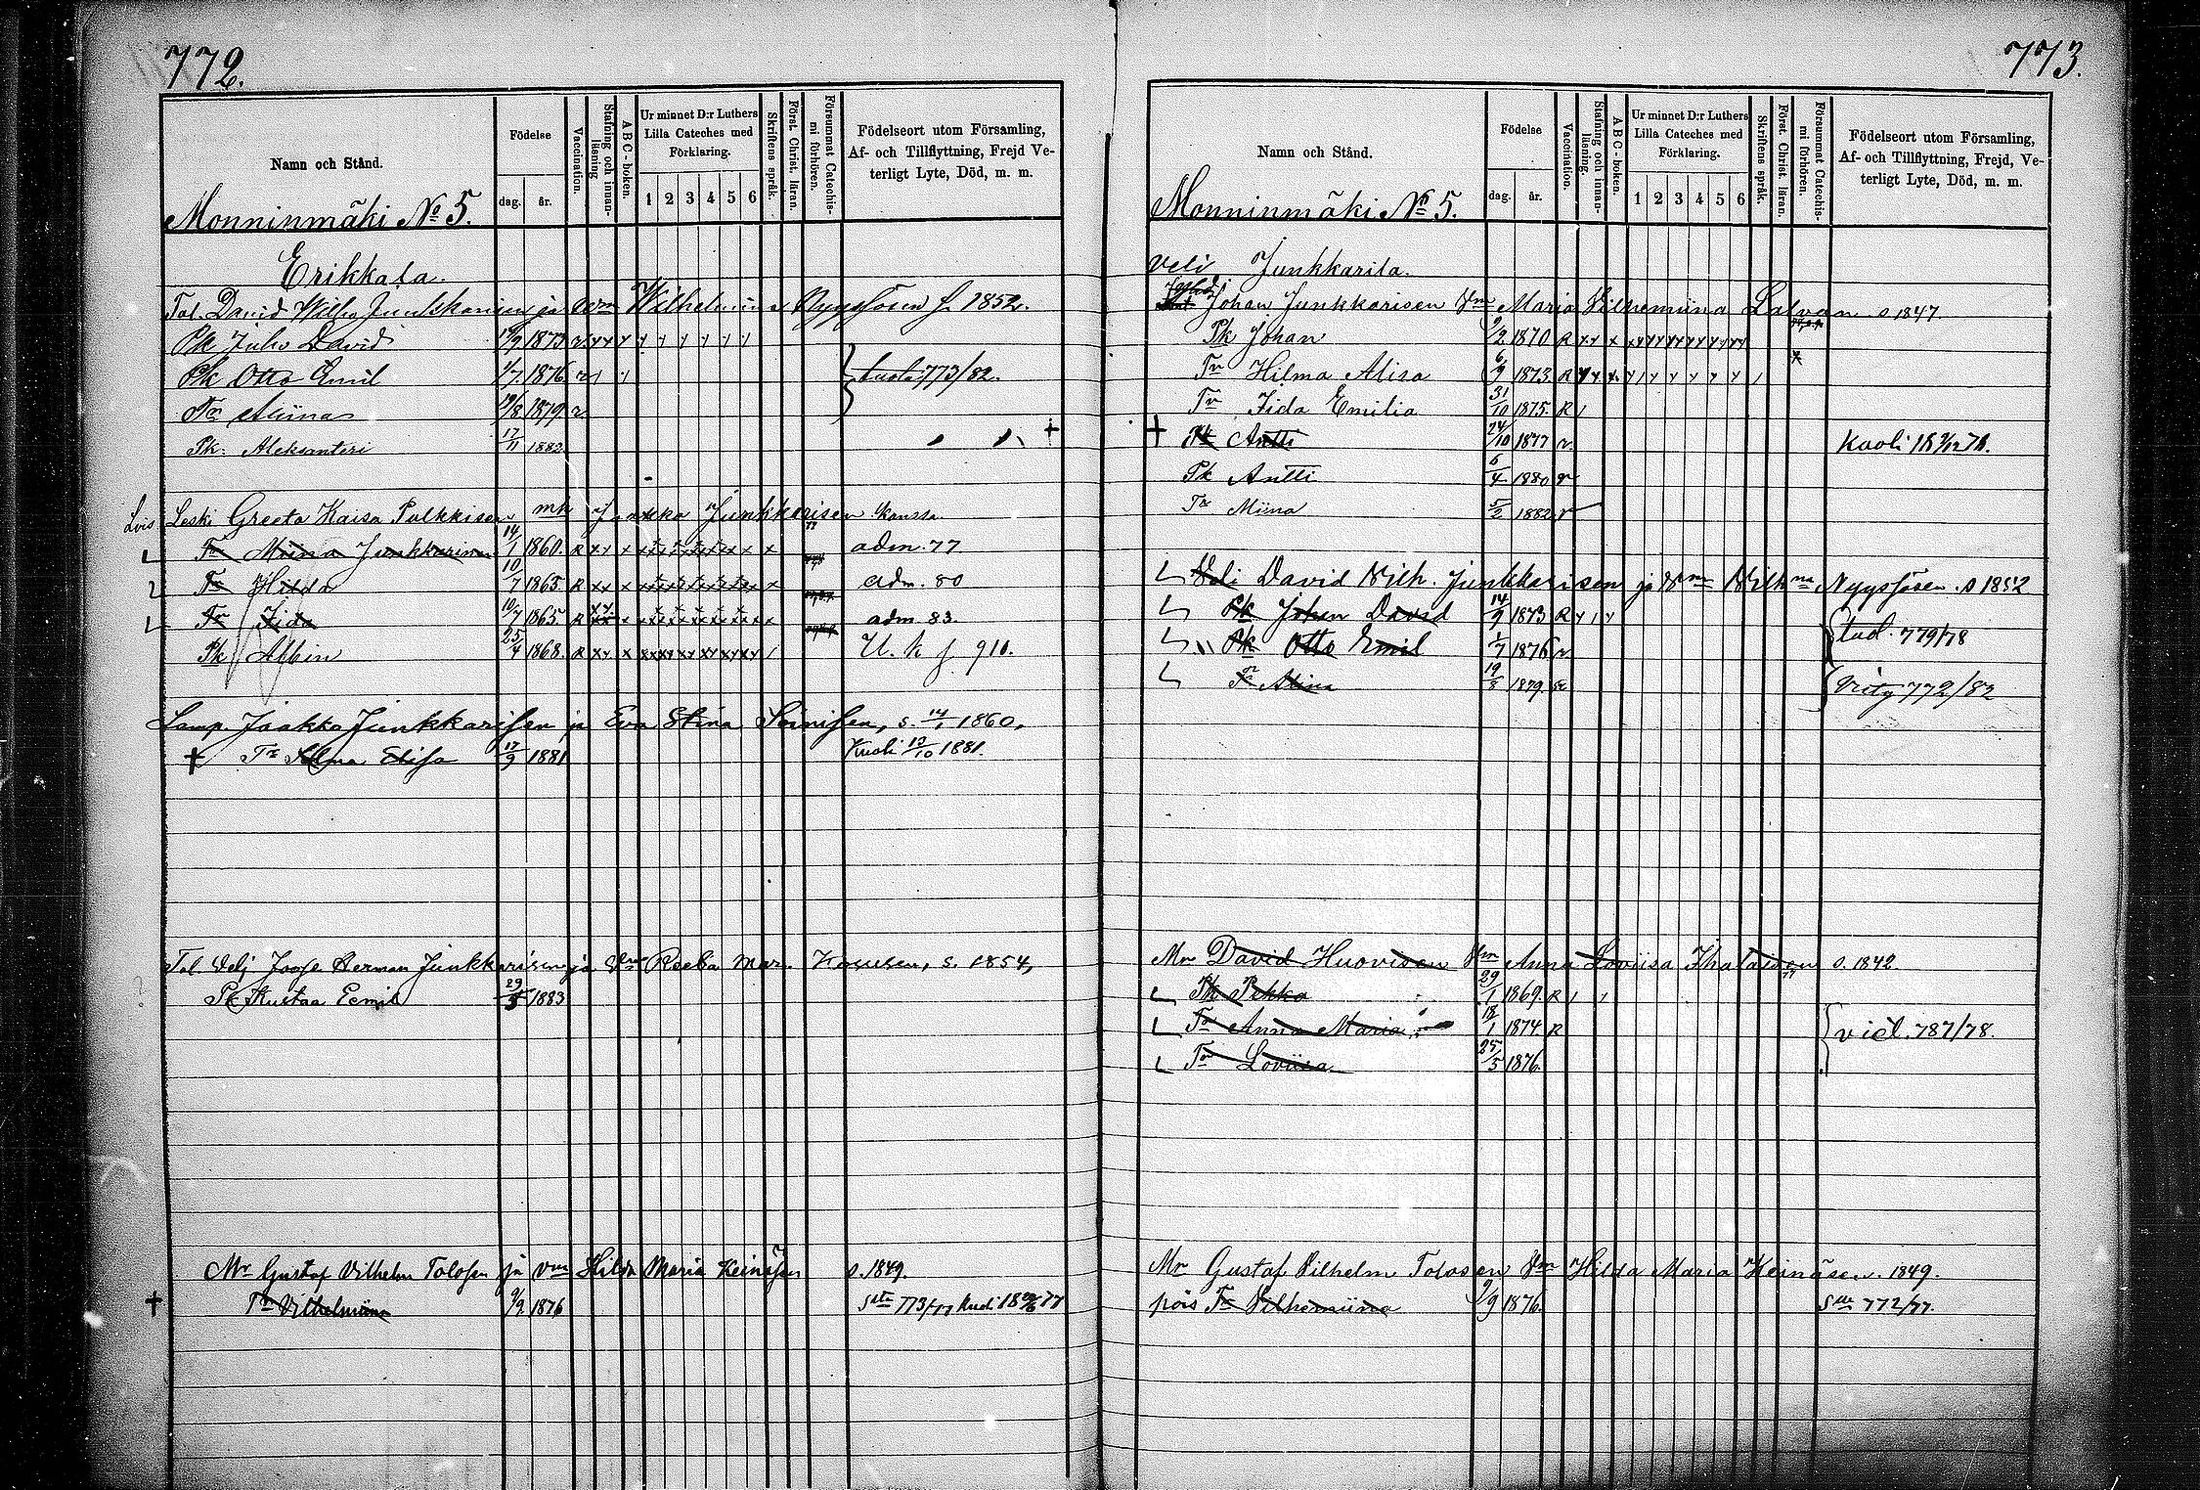 772.
Namn och Stånd.
Födelse
dag.
år.
Vaccination.
Stafning och innan-
läsning
A B C-boken.
Ur minnet D:r Luthers
Lilla Cateches med
Förklaring.
1 2 3 4 5 6
Skriftens språk.
Först. Christ. läran.
Försummat Catechis-
mi förhören.
Födelseort utom Församling,
Af- och Tillflyttning, Frejd Ve-
terligt Lyte, Död, m. m.
Monninmäki No 5.
Erikkala.
Tal. David Wilh. Junkkarinen ja vmo Wilhelmina Nyyssösen s. 1852.
Pk Juho David 1873
Pk Otto Emil 1/7 1876 773/82.
Tr Alina 19/8 1879 r
Pk. Aleksanteri 17/11 1882
Leski Greeta Kaisa Palkkisen mk Jaakko Junkkarisen kanssa
Tr Miina Junkkarinen 14/1 1860. R adm. 77
Tr Hilda 10/7 1865 R adm. 80
Tr Fida 10/7 1865. R adm. 83.
Pk Albin 25/4 1868. R U. k f. 910.
Lamp. Jaakko Junkkarisen ja Eva Stina Soinisen, s. 14/1 1860,
+ Tr Selma Elisa 17/9 1881 Kuoli 13/10 1881.
Tal. velj Joose Herman Junkkarisen ja vmo Reeta Mar. Kosusen, s. 1854,
Pk Kustaa Eemil 29/3 1883
Mr Gustaf Vilhelm Tolosen ja vmo Hilda Maria Keinäsen s. 1849.
+ Tr Vilhelmiina 9/9 1876 Ste 773/77 Kuoli
773.
Namn och Stånd.
Födelse
dag.
år.
Vaccination.
Stafning och innan-
läsning.
A B C-boken.
Ur minnet D:r Luthers
Lilla Cateches med
Förklaring.
1 2 3 4 5 6
Skriftens språk.
Först. Christ. läran.
Försummat Catechis-
mi förhören.
Födelseort utom Församling,
Af- och Tillflyttning, Frejd, Ve-
terligt Lyte, Död, m. m.
Monninmäki No 5.
Veli Junkkarila.
Johan Junkkarisen Vmo Maria Vilhemiina Laivan s 1847.
Pk Johan 9/2 1870 R
Tr Hilma Alisa 6/9 1873. R
Tr Fida Emilia 31/10 1875. R
+ Pk Antti 24/10 1877 r. Kuoli
Pk Antti 6/4 1880 r
Tr Miina 5/2 1882 r
Veli David Vilh. Junkkarisen ja Vmo Vilh:na Nyyssösen. s 1852
Pk Johan David 14/9 1873 R
Pk Otto Emil 1/7 1876 r tud. 779/78
Tr Alina 19/8 1879 772/82
Mr David Huovisen Vmo Anna Loviisa Ihalaisen s. 1842.
Pk Pekka 29/1 1869. R
Tr Anna Maria 18/1 1874 R vid. 787/78.
Tr Loviisa 25/5 1876.
Mr Gustaf Vilhelm Tolosen Vmo Hilda Maria Keinäsen. 1849.
pois Tr Vilhemiina 9/9 1876. Ste 772/77.